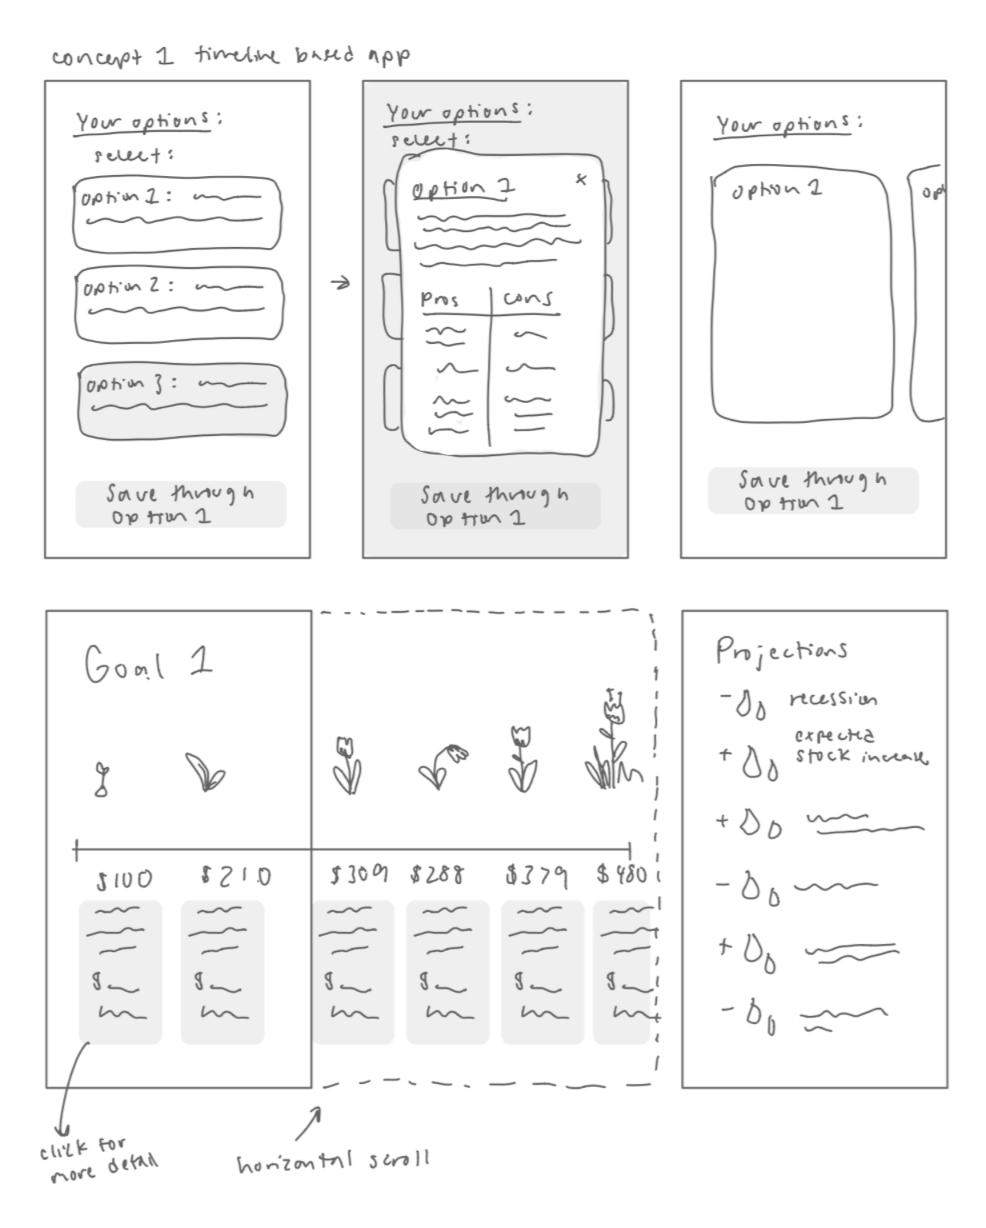 concept 1 timeline based app
Your options:
select:
option 1:
option 2:
option 3:
Save through
option 1
Your options:
select:
option 1
x
Pros
cons
Save through
option 1
Your options:
option 1
op
Save through
option 1
Goal 1
$100
$210
$309
$288
$379
$480
$
$
$
$
$
$
click for
more detail
horizontal scroll
Projections
- recession
+ expected
stock increase
+
-
+
-